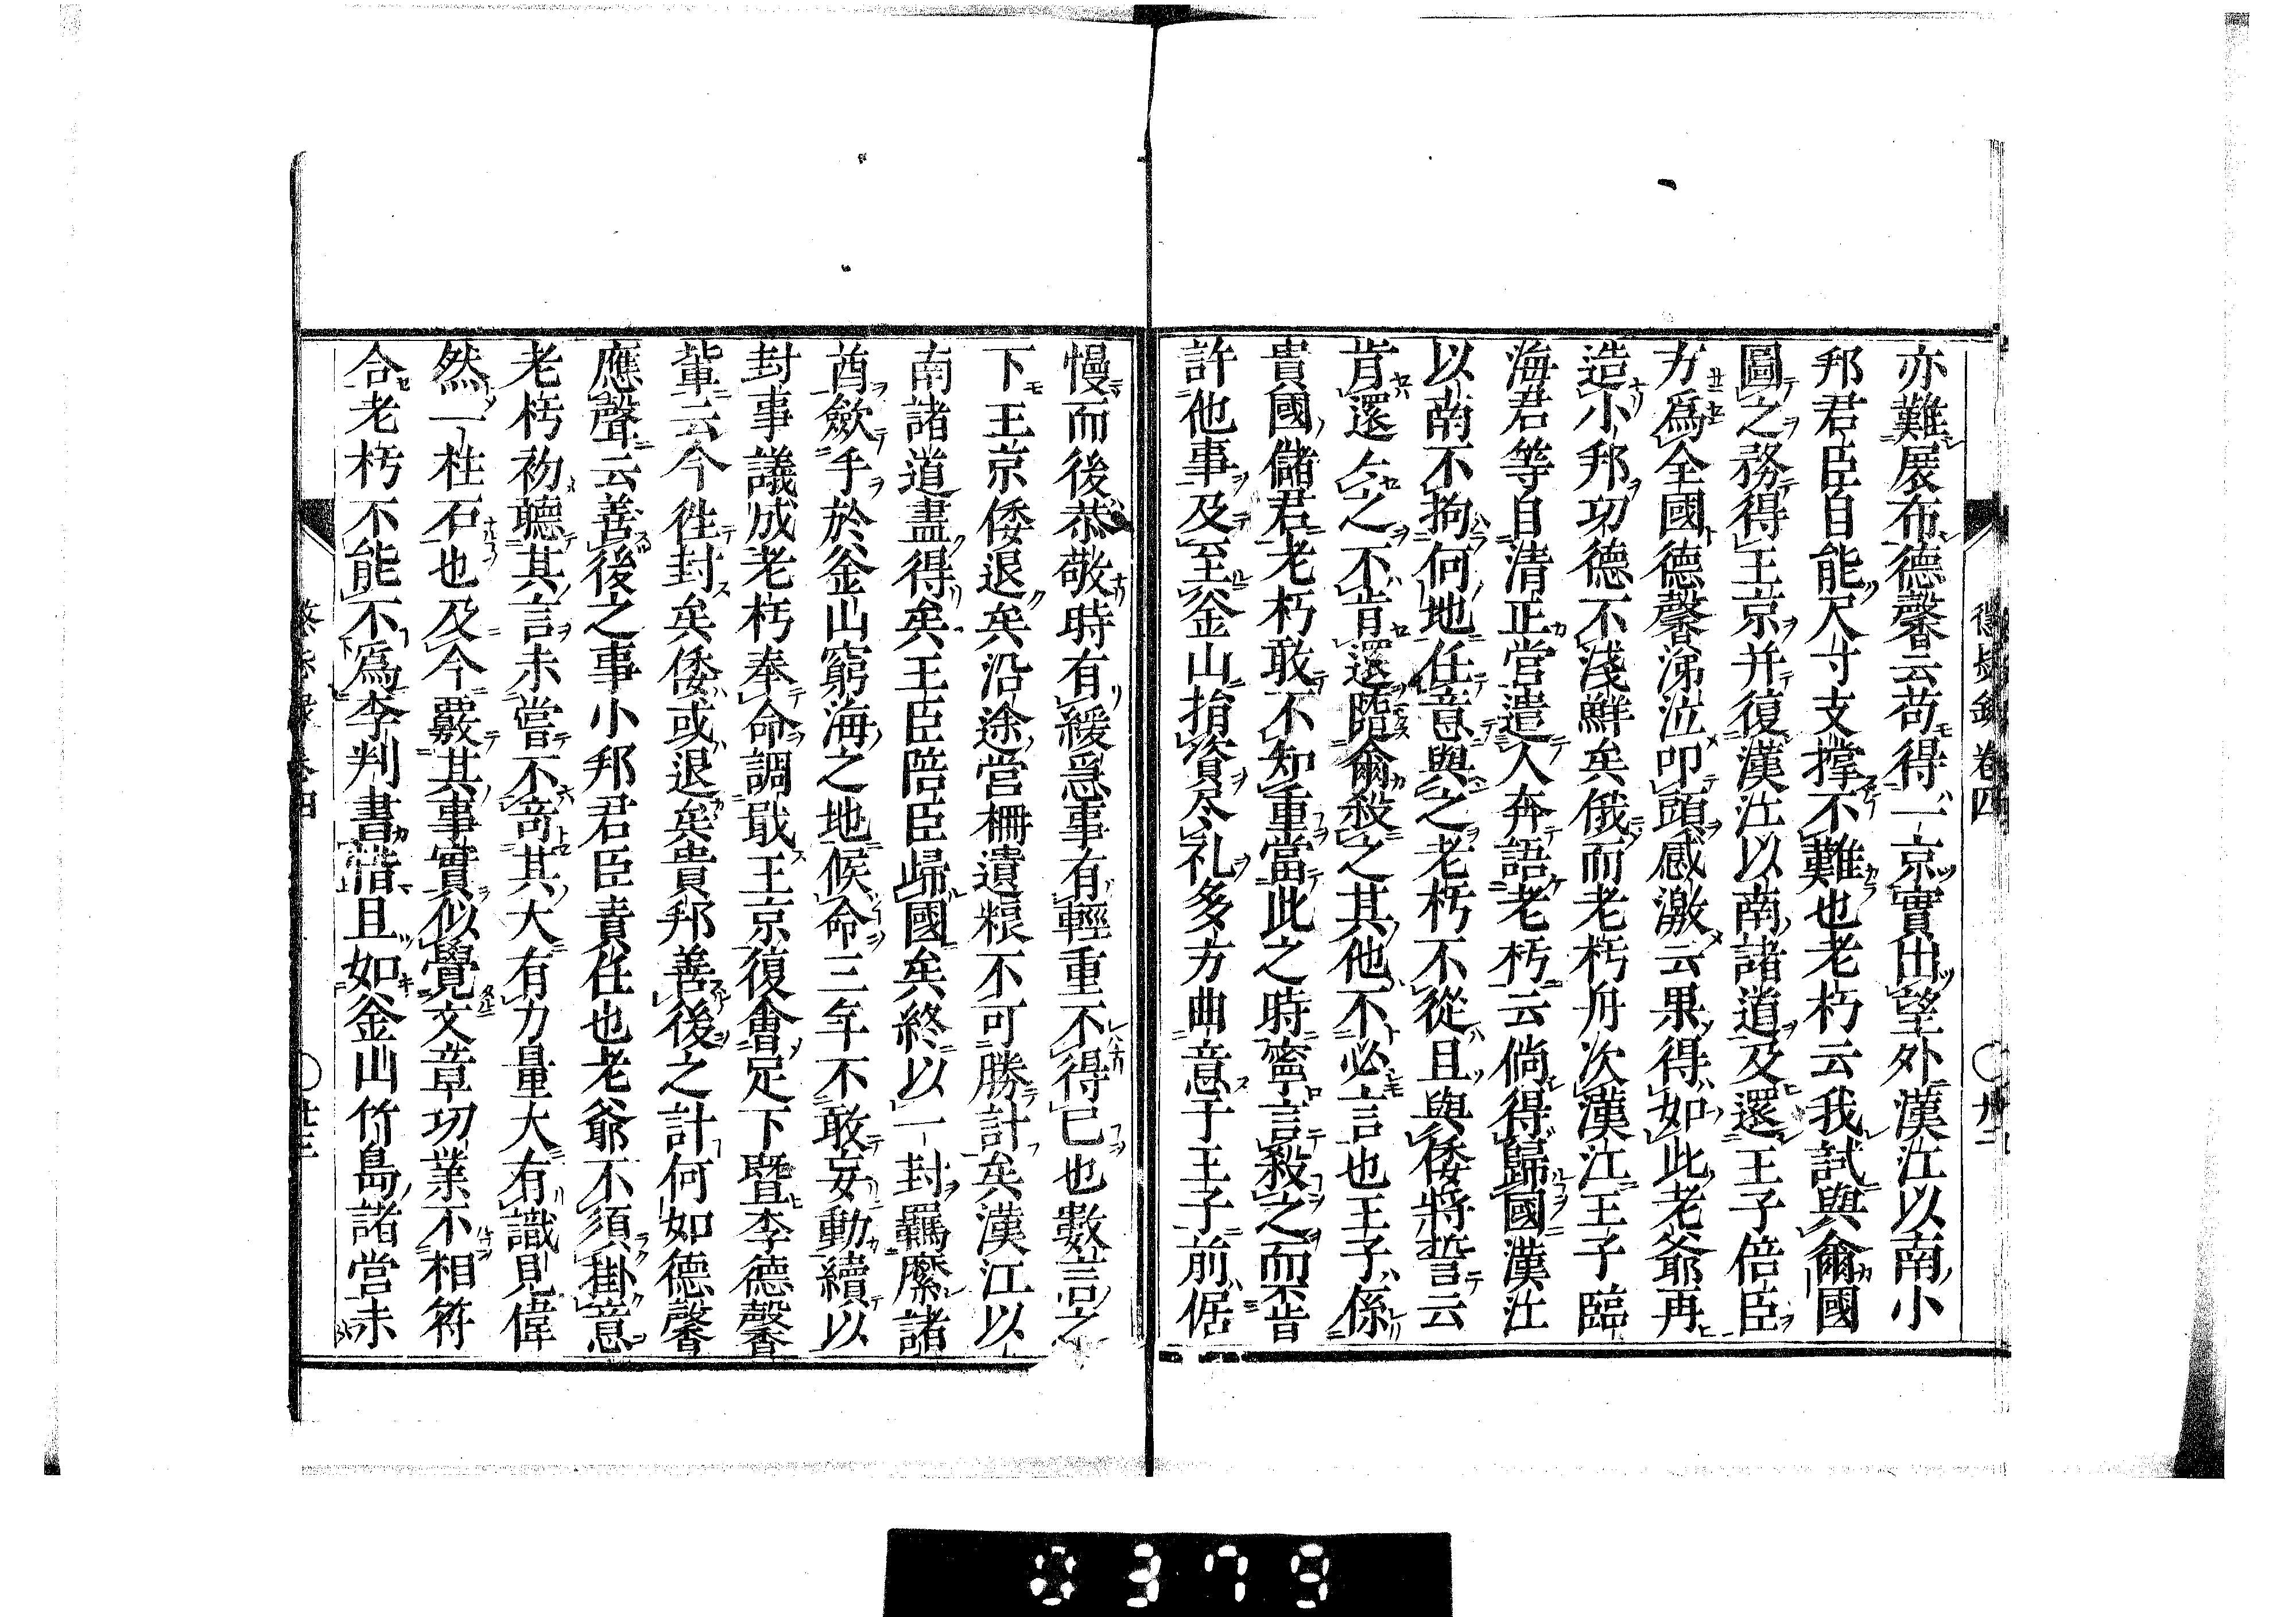 亦難展布德馨云苟得一京實出望外漢江以南小
邦君臣自能尺寸支撐不難也老朽云我試與爾國
圖之務得王京并復漢江以南諸道及還王子倍臣
方爲全國德馨涕泣叩頭感激云果得如此老爺再
造小邦功德不淺鮮矣俄而老朽舟次漢江王子臨
海君等自清正营遣人奔語老朽云倘得歸國漢江
以南不拘何地任意與之老朽不從且與倭將誓云
肯還亦之不肯還臨爾殺之其他不必言也王子係
貴國儲君老朽敢不知重當此之時寧言殺之而不肯
許他事及至釜山捐資尽礼多方曲意于王子前倨
慢而後恭敬時有緩急事有輕重不得已也數言之
下王京倭退矣沿途营柵遺粮不可勝計矣漢江以
南諸道盡得矣王臣陪臣歸國矣終以一封羈縻諸
酋歛手於釜山窮海之地候命三年不敢妄動續以
封事議成老朽奉命調戢王京復會足下暨李德馨
軰云今徃封矣倭或退矣貴邦善後之計何如德馨
應聲云善後之事小邦君臣責任也老爺不須掛意
老朽初聽其言未嘗不奇其大有力量大有識見偉
然一柱石也及今覈其事實似覺文章功業不相符
合老朽不能不爲李判書惜且如釜山竹島諸营未
懲毖錄 卷四
0379